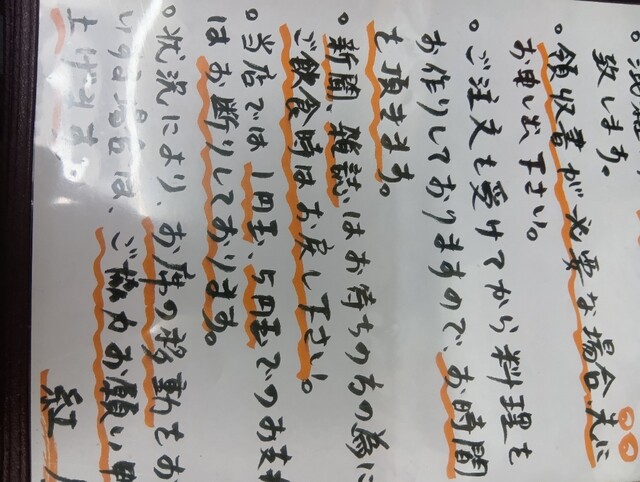 致します。
・領収書が必要な場合、先に
お申し出下さい。
・ご注文を受けてから料理を
お作りしておりますので、お時間
を頂きます。
・新聞、雑誌はお待ちの方の為に
ご飲食時はお戻し下さい。
・当店では1円玉、5円玉でのお支
はお断りしております。
・状況により、お席の移動をお
いする場合は、ご協力お願い申
上げます。
紅